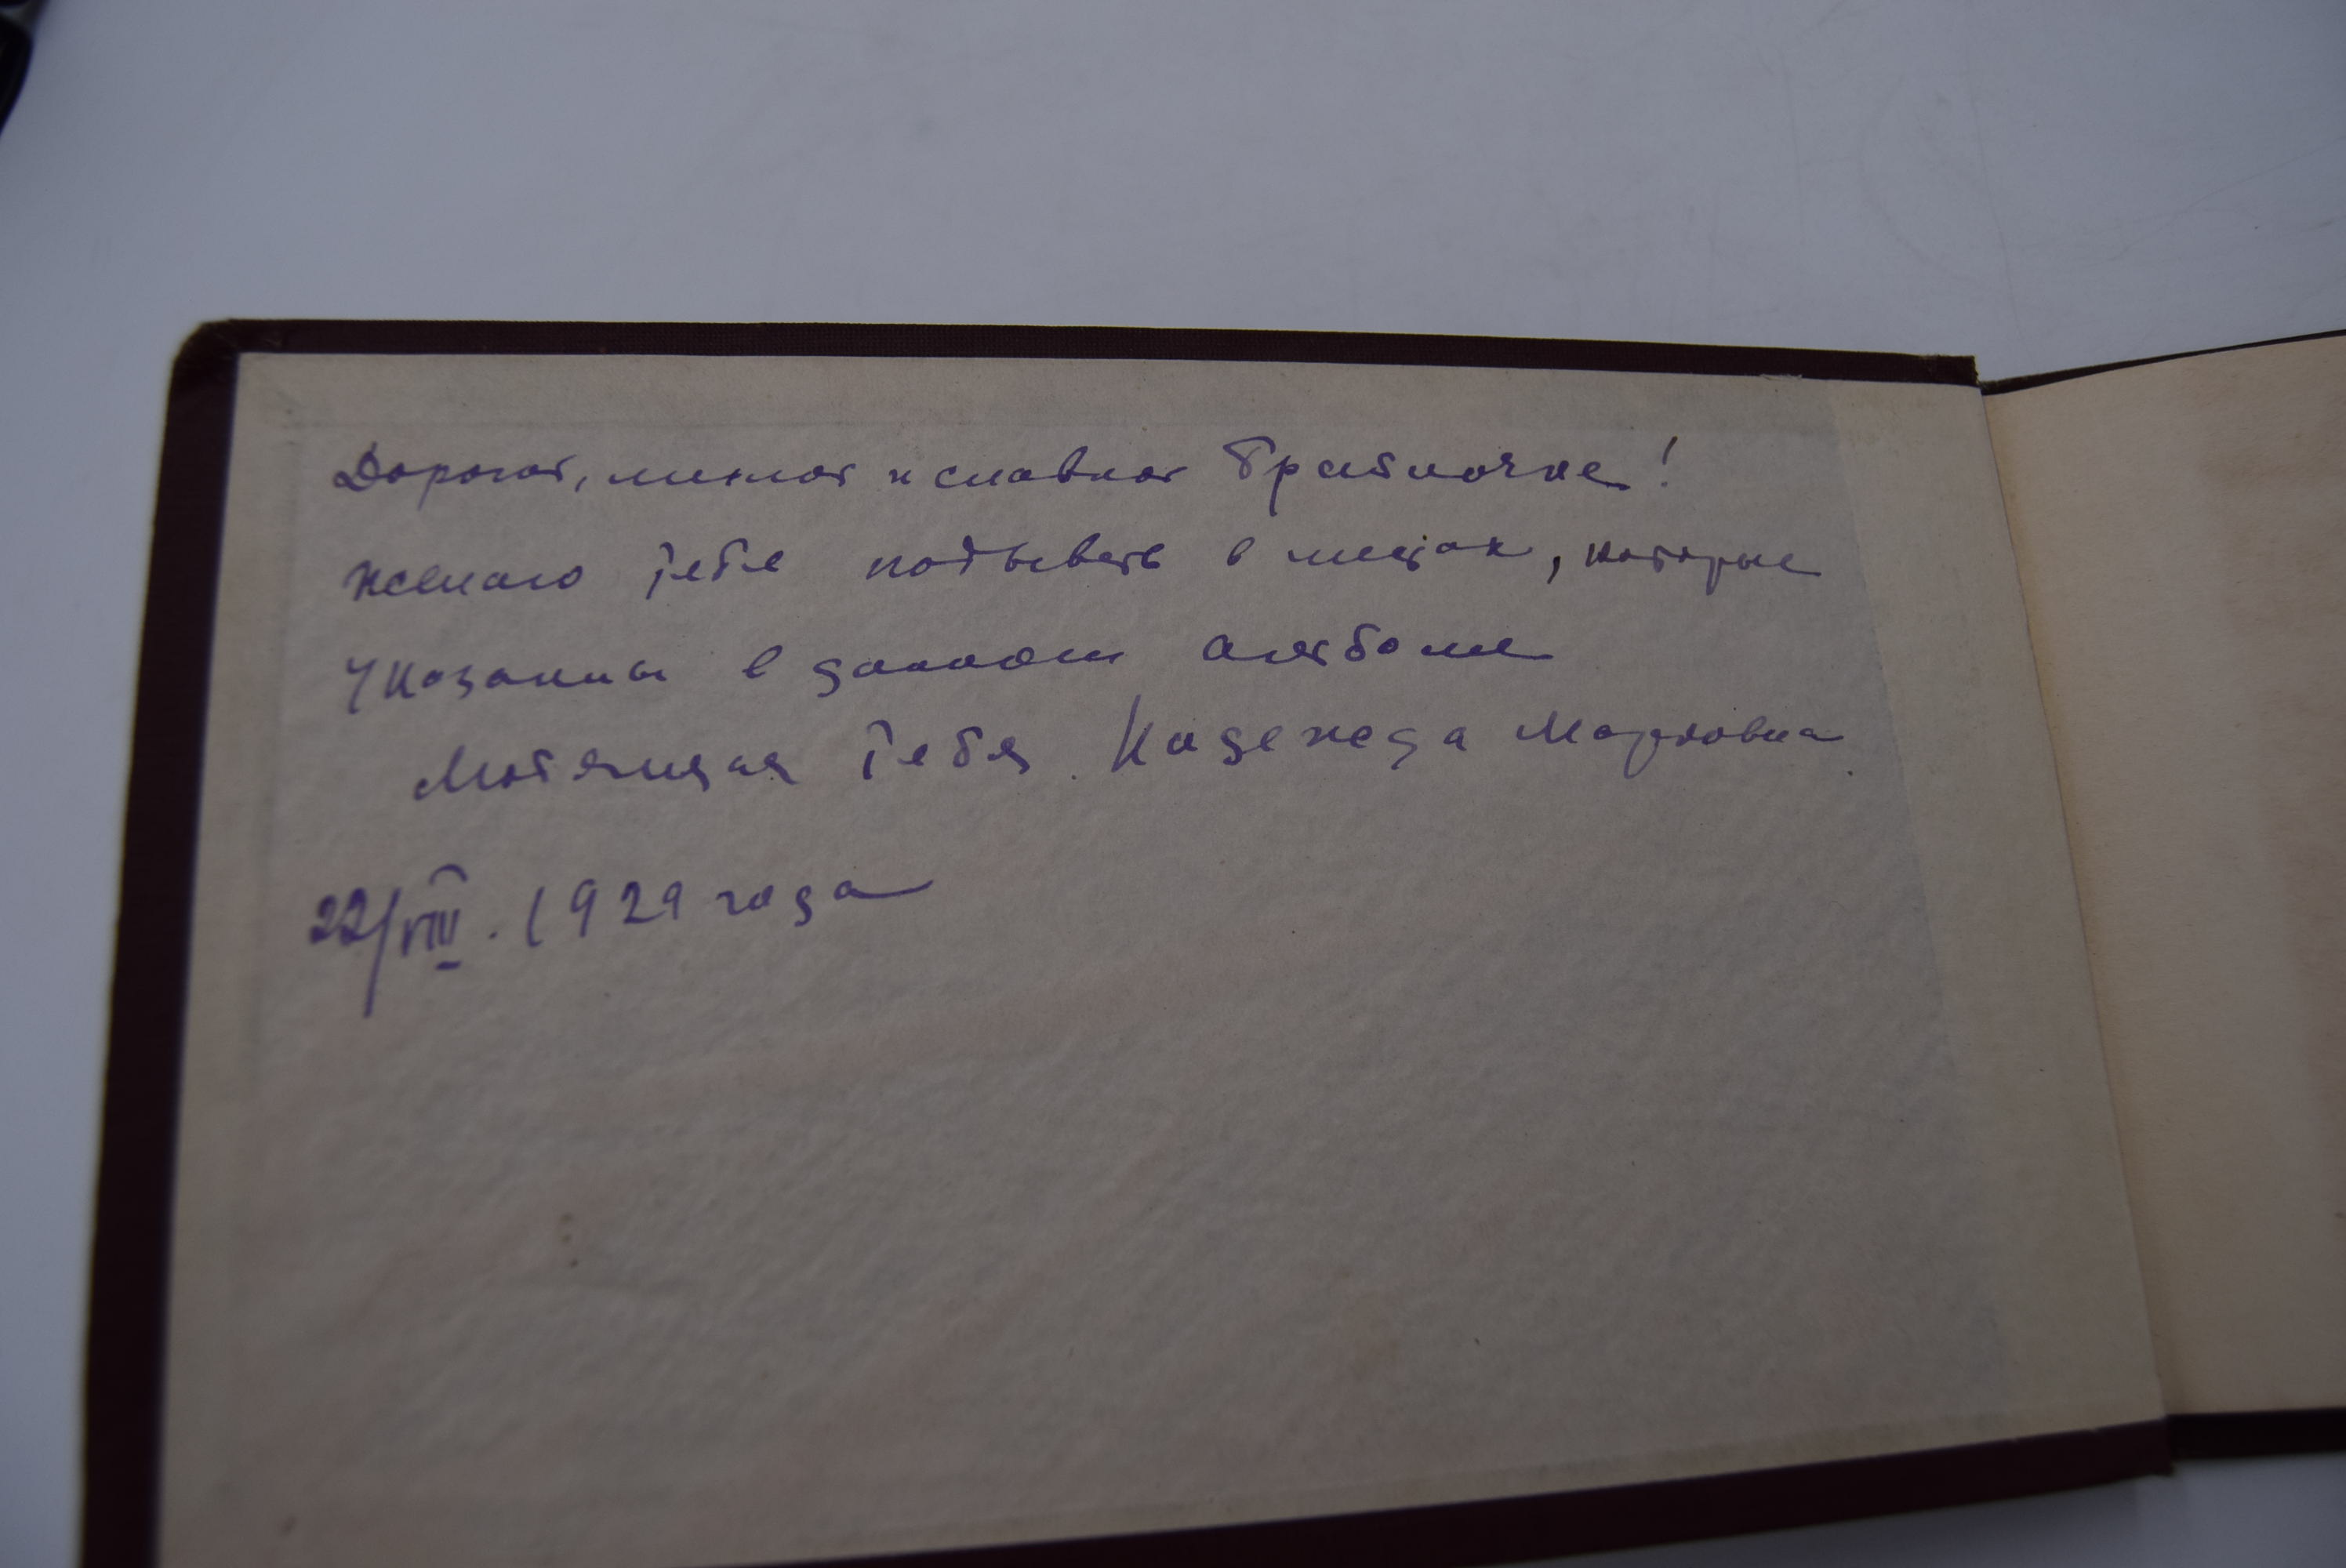 Дорогая, милая и славная
желаю тебе побывать в местах, которые
указаны в данном альбоме
Любящая тебя Надежда Марковна.
22/VIII. 1929 года